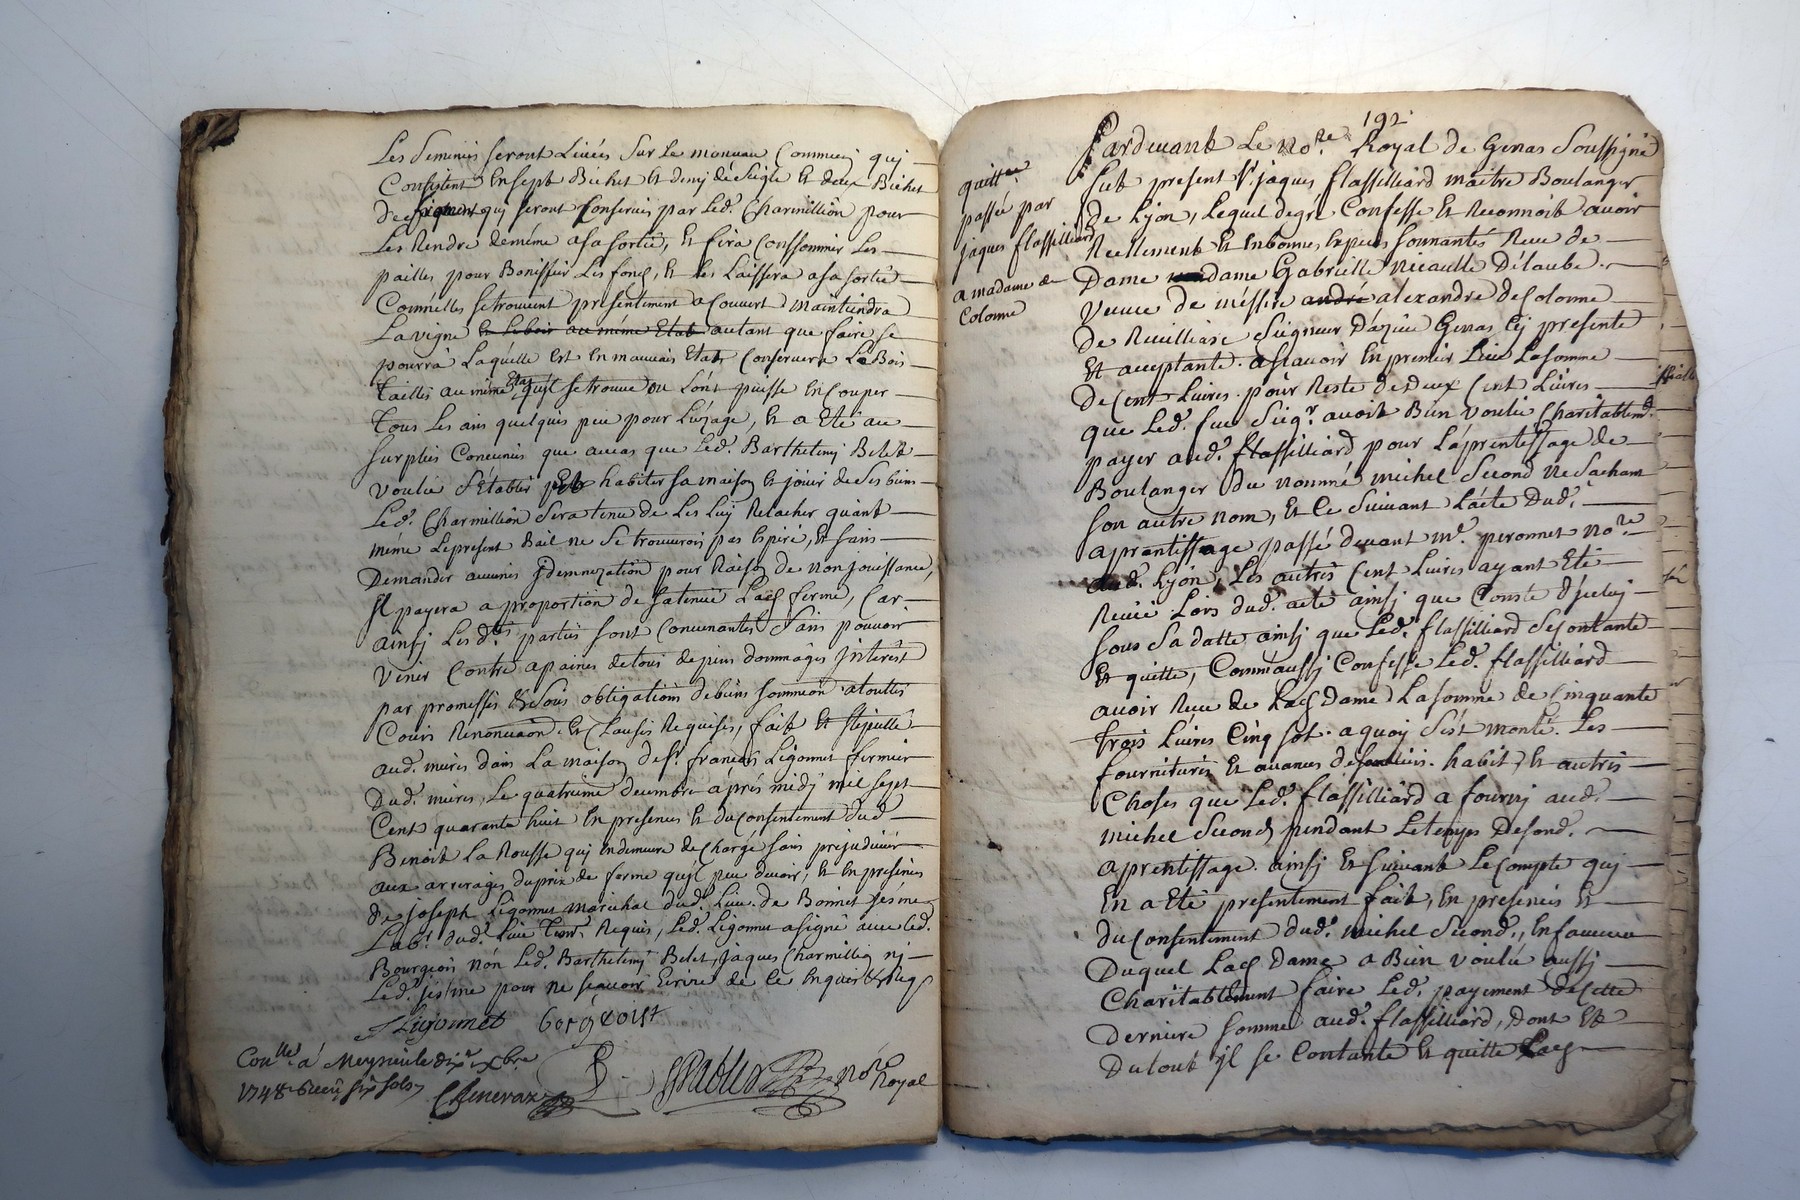 Les Semences seront Livées Sur Le monceau Commun qui
Consistent En sept Bichet et demy de seigle et deux Bichet
de froment qui seront Conservés par Led. Charmillion pour
Les Rendre de meme a sa sortie, et fera Conssommer Les
pailles pour Bonifier Les fonds, et Les Laissera a sa sortie
Comme elles se trouvent presentement a Couvert Maintiendra
La vigne et Le bois au même Etat autant que faire se
pourra Laquelle est En mauvais Etat Conservera Le Bois
Taillis au même Etat qu'il se trouve ou L'ont puisse En Couper
Tous Les ans quelques peu pour L'uzage, et a Eté au
surplus Convenus que au cas que Led. Barthelemy Belet
voulu S'Etablir et habiter sa maison et jouir de ses biens
Led. Charmillion sera tenu de Les Luy Relacher quant
même Le present Bail ne se trouverois pas Expiré, et sans
Demander aucunes jdemnization pour Raison de non jouissance,
jl payera a proportion de sa tenue Lad. ferme, Car
ainsy Les d. parties sont Convenantes sans pouvoir
venir Contre a paines de tous depens dommages jnterêst
par promesses et Sous obligations de biens soumission a touttes
Cours Renonciaon et Clauses Requises, fait et stipullé
aud. mures dans La maison de sr. françois Ligonnet fermier
Dud. mures, Le quatrieme decembre après midy mil sept
Cent quarante huit En presence et du Consentement dud.
Benoit La Rousse qui En demeure de Chargé sans prejudicier
aux arrerages du prix de ferme qu'jl peu devoir, et En presences
de joseph Ligonnet marechal dud. Lieu. de Bonnet jesme
Lab.r dud. Lieu Tem. Requis, Led. Ligonnet a signé avec led.
Bourgeois non Led. Barthelemy Belet, jaques Charmillion ny
Led. jesme pour ne sçavoir Ecrire de Ce Enquis et Req.
J Ligonnet Borgeoist
Con.llé à Meyzieu le dix.e xbre
1748 Receu six sols
Chenevaz
Nore Royal
192.
Pardevant Le No.re Royal de Genas Soussigné
quittce
passé par
jaques flassilliard
a madame de
Colonne
fut present Sr. jaques flassilliard maitre Boulanger
de Lyon, Lequel de gré Confesse et Reconnoit avoir
Reellement et En bonnes Especes sonnantes Receu de
Dame madame Gabrielle Nicaulle Délaube
veuve de méssire andré alexandre de Colonne
De Revilliasé Seigneur D'azieu Genas Cy presente
Et acceptante. ascavoir En premier Lieu La somme
De Cent Livres. pour Reste de Deux Cent Livres
que Led. feu Seigr. avoit Bien voulu Charitablemt.
payer aud. flassilliard pour L'áprentissage de
Boulanger du nommé michel Second ne Sachant
son autre nom, et Ce Suivant L'acte Dud.
aprentissage passé devant me. peronnet No.re
aud. Lyon, Les autres Cent Livres ayant Eté
Receu Lors dud. acte ainsy que Conste d'jceluy
sous Sa datte ainsy que Led. flassilliard Se Contante
Et quitte, Comm'aussy Confesse Led. flassilliard
avoir Receu de Lad. Dame La somme de Cinquante
trois Livres Cinq sols. a quoy S'est monté Les
fournitures et avances de souliers. habits, et autres
Choses que Led. flassilliard a fourny aud.
michel Second pendant Le temps De son d.
aprentissage. ainsy et suivant Le Compte quj
En a Eté presentement fait, En presences Et
du Consentement dud. michel Second, En faveur
Duquel Lad. Dame a Bien voulu aussj
Charitablement faire Led. payement de Cette
Derniere somme aud. flassilliard, Dont Et
Du tout jl se Contante et quitte Lad.